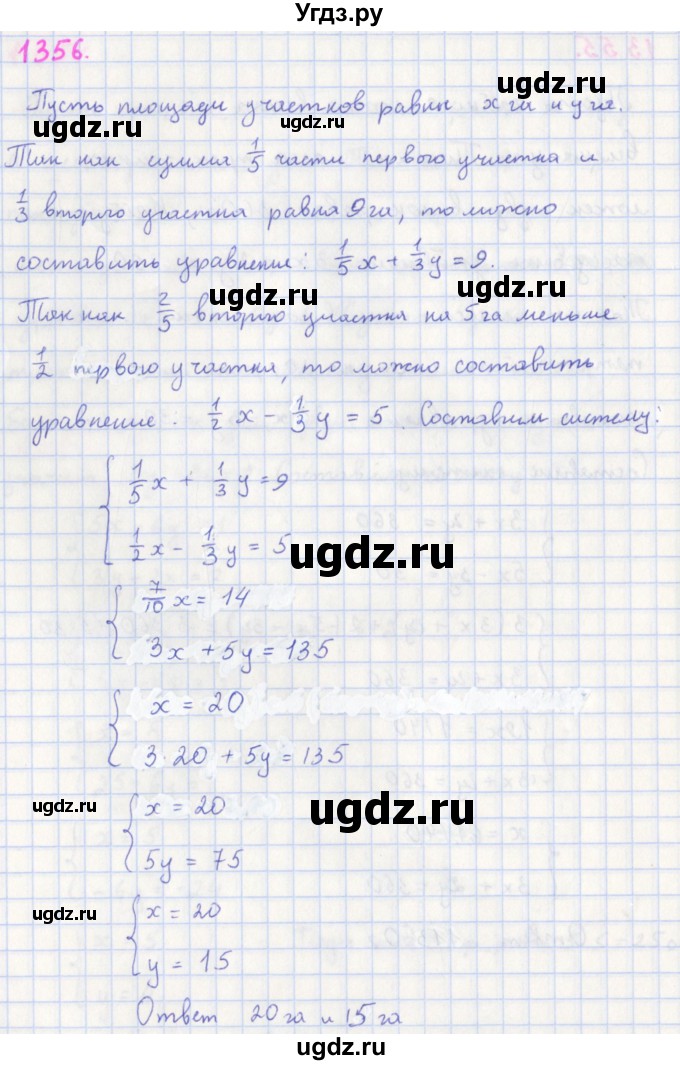 Угдз.ру
1356.
Пусть площади участков равны x га и y га.
ugdz.ru ugdz.ru ugdz.ru
Так как сумма 1/5 части первого участка и
1/3 второго участка равна 9 га, то можно
составить уравнение: 1/5 x + 1/3 y = 9.
ugdz.ru ugdz.ru
Так как 2/5 второго участка на 5 га меньше
1/2 первого участка, то можно составить
уравнение. 1/2 x − 1/3 y = 5. Составим систему:
{ 1/5 x + 1/3 y = 9
1/2 x − 1/3 y = 5
ugdz.ru
{ 7/10 x = 14
3x + 5y = 135
{ x = 20
3·20 + 5y = 135
ugdz.ru ugdz.ru
{ x = 20
5y = 75
ugdz.ru
{ x = 20
y = 15
Ответ 20 га и 15 га
ugdz.ru